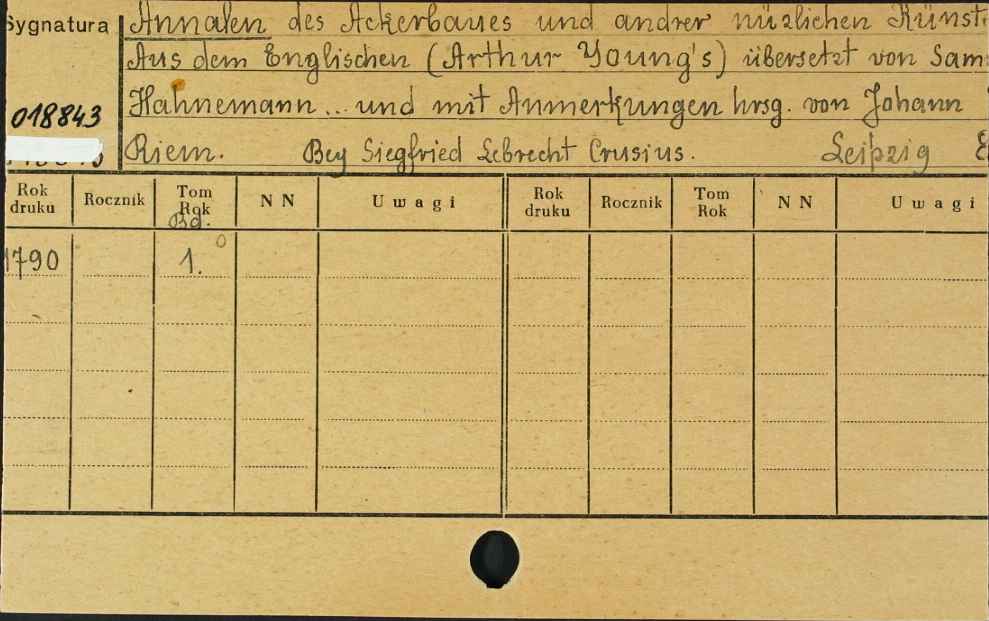 Sygnatura
Annalen des Ackerbaues und andrer nüzlichen Künst
Aus dem Englischen (Arthur Young's) übersetzt von Sam
Hahnemann... und mit Anmerkungen hrsg. von Johann
018843
Riem. Bey Siegfried Lebrecht Crusius. Leipzig
Rok druku Rocznik Tom Rok N N Uwagi Rok druku Rocznik Tom Rok N N Uwagi
Bd.
1790 1.